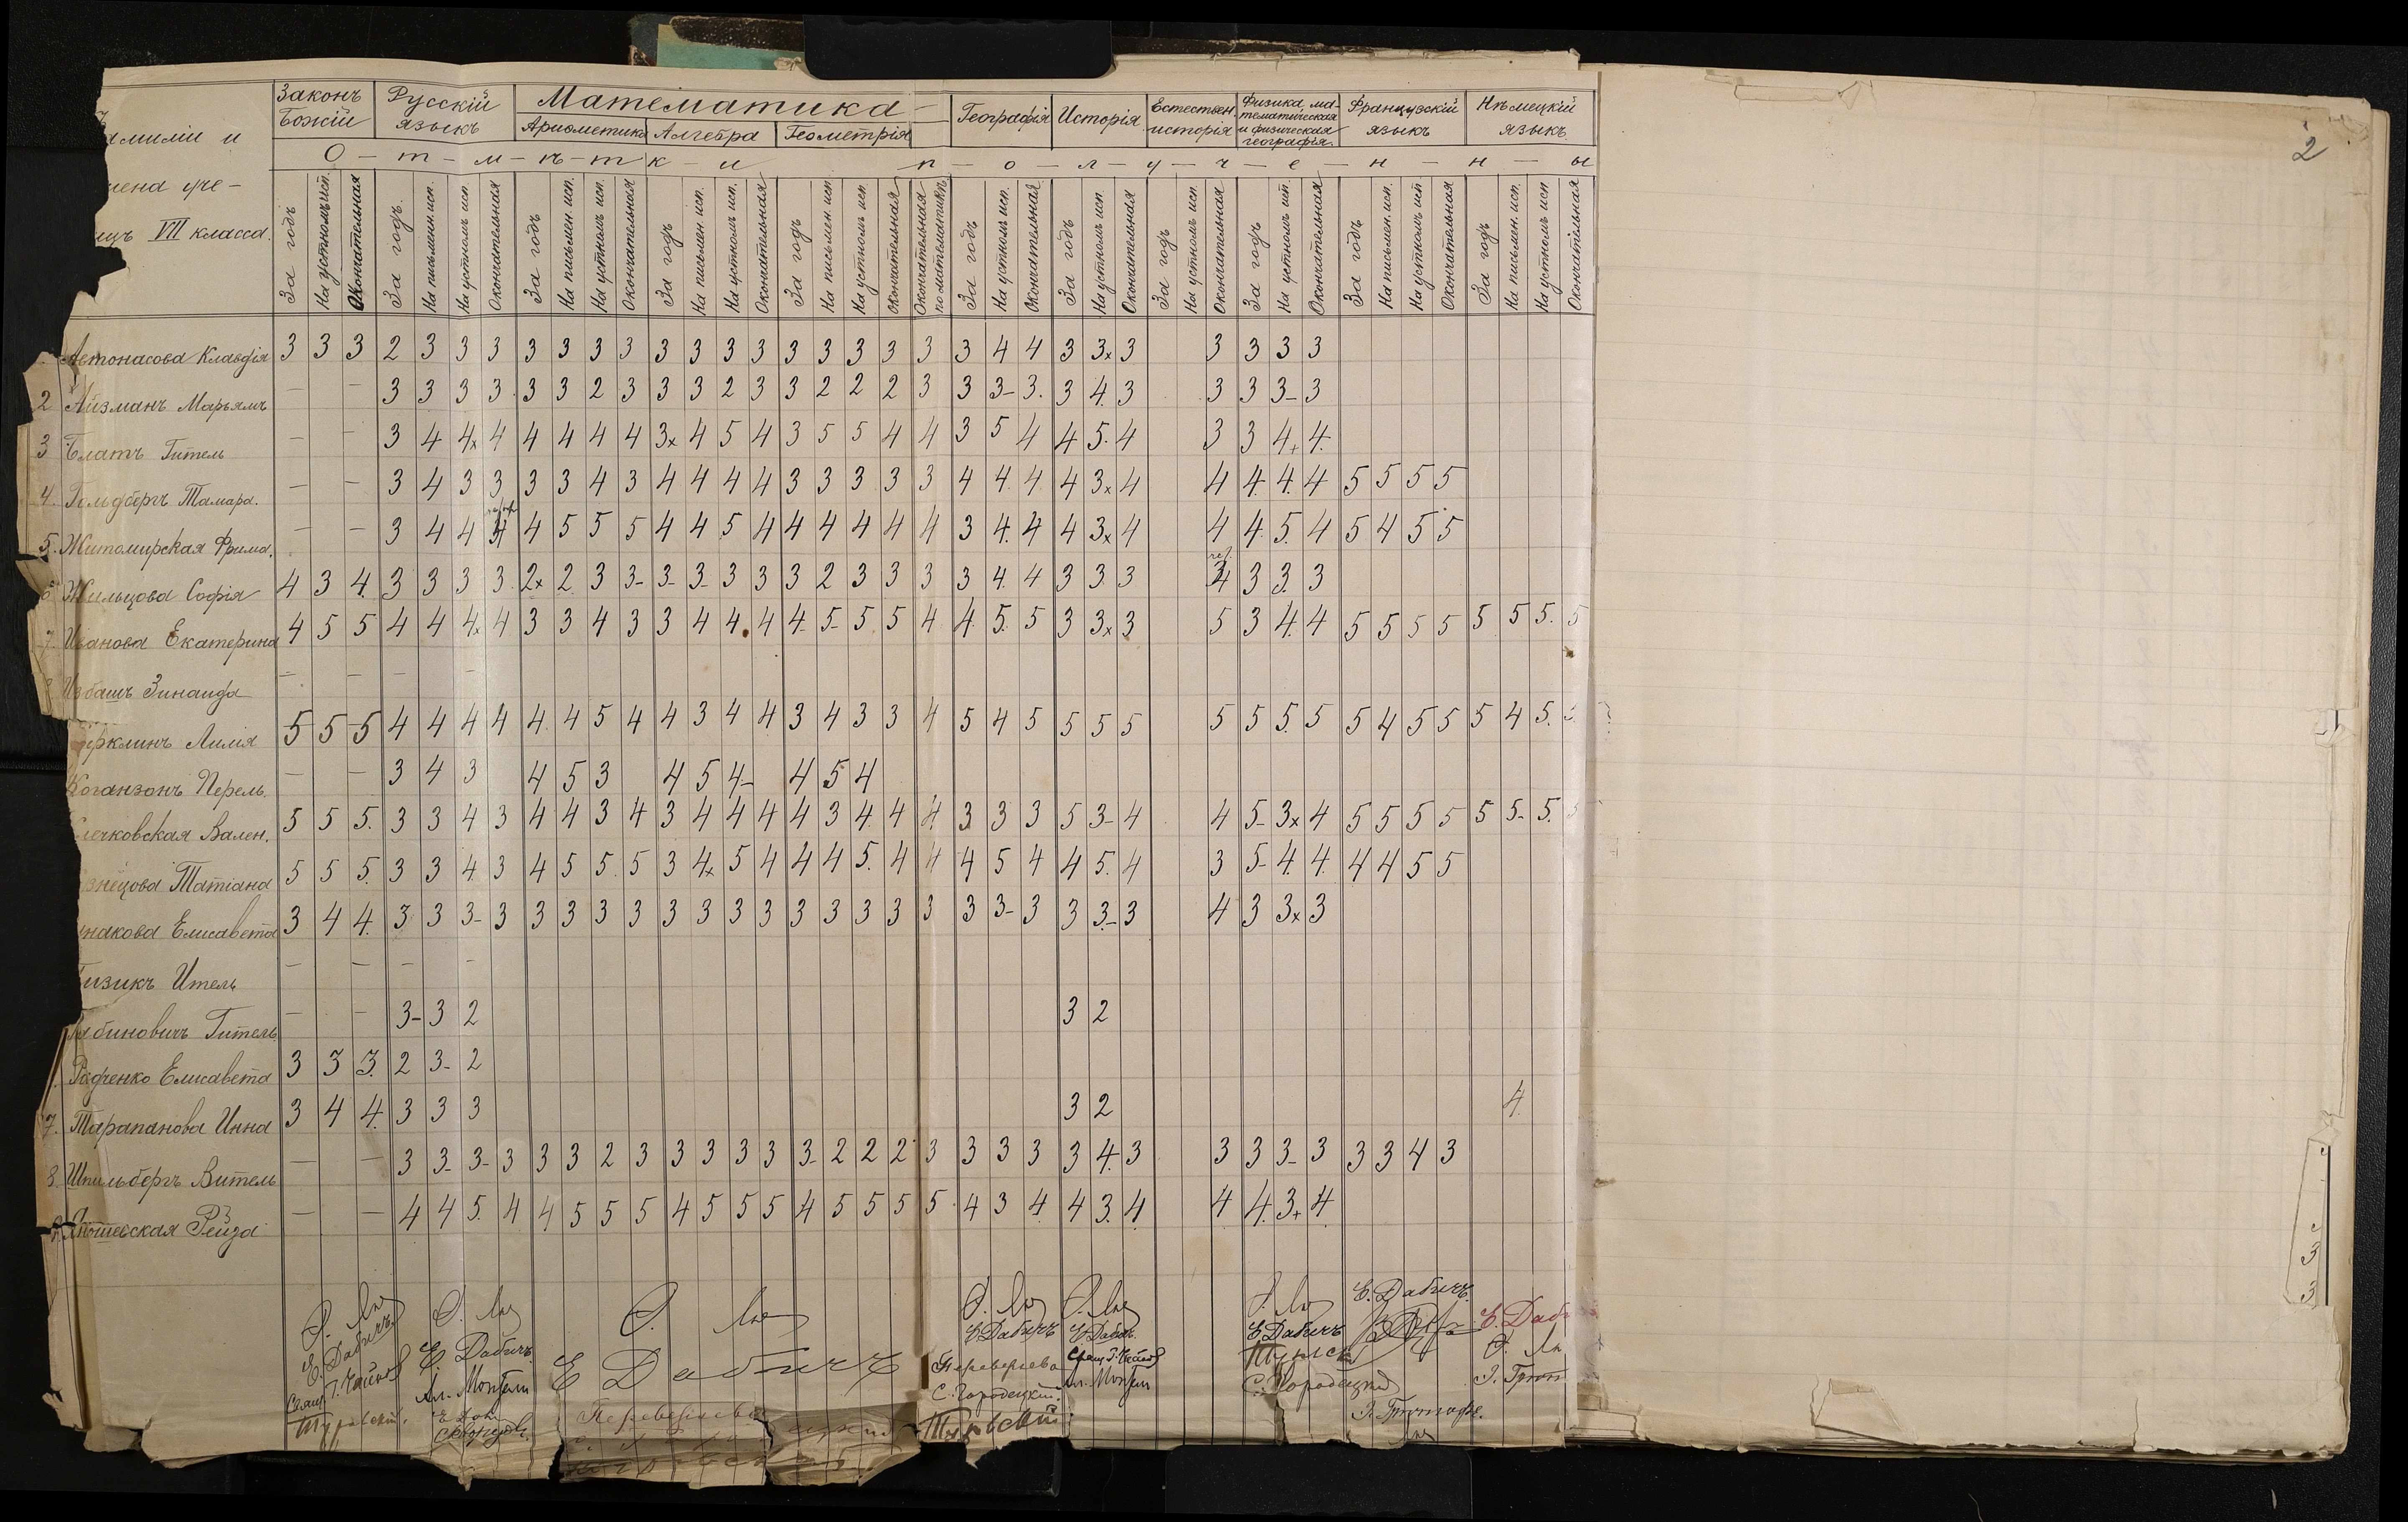 2
Законъ Божій Русскій языкъ Математика Географія Исторія Естествен. исторія Физика, математическая и физическая географія. Французскій языкъ Нѣмецкій языкъ.
Ариѳметика Алгебра Геометрія
О – т – м – ѣ – т к – и п – о – л – у – ч – е – н – н – ы
амиліи и
мена уче –
ицъ VII класса.
За годъ На устномъ исп. Окончательная За годъ. На письмен. исп. На устномъ исп. Окончательная За годъ На письмен. исп. На устномъ исп. Окончательная За годъ На письмен. исп. На устномъ исп. Окончательная За годъ На письмен. исп. На устномъ исп. Окончательная Окончательная по математикѣ За годъ На устномъ исп. Окончательная За годъ На устномъ исп. Окончательная За годъ На устномъ исп. Окончательная За годъ На устномъ исп. Окончательная За годъ На письмен. исп. На устномъ исп. Окончательная За годъ На письмен. исп. На устномъ исп. Окончательная
Автонасова Клавдія 3 3 3 2 3 3 3 3 3 3 3 3 3 3 3 3 3 3 3 3 3 4 4 3 3x 3 3 3 3 3
2 Айзманъ Марьямъ – – 3 3 3 3 3 3 2 3 3 3 2 3 3 2 2 2 3 3 3- 3. 3 4. 3 3 3 3- 3
3 Блатъ Гитель – – 3 4 4x 4 4 4 4 4 3x 4 5 4 3 5 5 4 4 3 5 4 4 5. 4 3 3 4+ 4.
4. Гольдбергъ Тамара. – – 3 4 3 3 3 3 4 3 4 4 4 4 3 3 3 3 3 4 4 4 4 3x 4 4 4. 4. 4 5 5 5 5
5. Житомирская Фрима. – – 3 4 4 4 4 5 5 5 4 4 5 4 4 4 4 4 4 3 4. 4 4 3x 4 4 4. 5. 4 5 4 5 5
6 Жильцова Софія 4 3 4. 3 3 3 3. 2x 2 3 3- 3- 3- 3 3 3 2 3 3 3 3 4. 4 3 3 3 3 3. 3
7. Иванова Екатерина 4 5 5 4 4 4x 4 3 3 4 3 3 4 4. 4 4- 5- 5 5 4 4. 5. 5 3 3x 3 5 3 4. 4 5 5 5 5 5 5 5. 5
Избашъ Зинаида – – – –
ерклинъ Лилія 5 5 5 4 4 4 4 4. 4 5 4 4 3 4 4 3 4 3 3 4 5 4 5 5 5 5 5 5 5. 5 5 4 5 5 5 4 5.
Коганзонъ Перель. – – 3 4 3 4 5 3 4 5 4- 4 5 4
лечковская Вален. 5 5 5. 3 3 4 3 4 4 3 4 3 4 4 4 4 3 4. 4 4. 3. 3 3 5 3- 4 4 5- 3x 4 5 5 5 5 5 5- 5.
знецова Татіана 5 5 5. 3 3 4. 3 4 5 5. 5 3 4x 5 4 4 4 5. 4 4 4 5 4 4 5. 4 3 5- 4. 4. 4 4 5 5
накова Елисавета 3 4 4. 3 3 3- 3 3 3 3 3 3 3 3 3 3 3 3 3 3 3 3- 3 3 3- 3 4 3 3x 3
изикъ Итель – – – –
абиновичъ Гитель – – 3- 3 2 3 2
Радченко Елисавета 3 3 3. 2 3- 2
7. Тарапанова Инна 3 4 4. 3 3 3 3 2 4.
8. Шпильбергъ Витель – – 3 3- 3- 3 3 3 2 3 3 3 3 3 3- 2 2 2 3 3 3 3 3 4. 3 3 3 3- 3 3 3 4 3
Рейза – – 4 4 5. 4 4 5 5 5 4 5 5 5 4 5 5 5 5 4 3 4. 4 3. 4 4 4. 3+ 4.
Е. Дабичъ Е. Дабичъ. Е Дабичъ Е. Дабичъ Е. Дабичъ Е. Дабичъ Е. Дабичъ.
С. Городецкій.